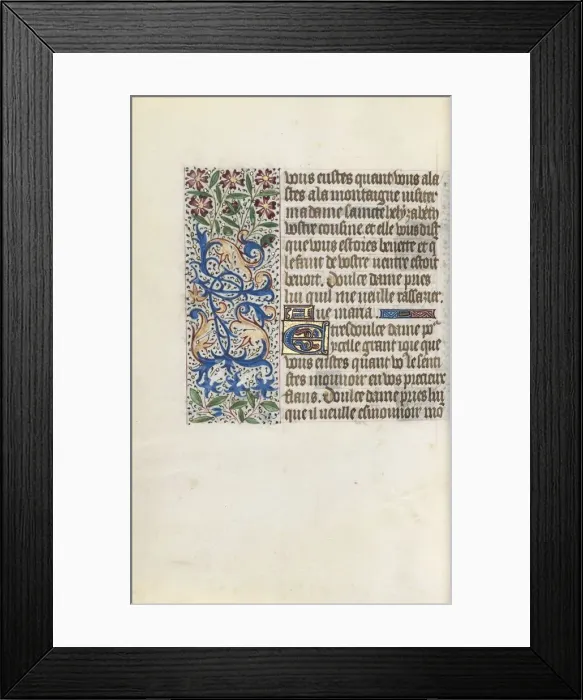 vous eustes quant vous ala
stes a la montaigne visiter
ma dame saincte helyzabeth
vostre cousine et elle vous dist
que vous estoies benoite et q
le fant de vostre ventre estoit
benoit. Doulce dame pries
lui quil me veille
Aue maria.
E tresdoulce dame po
celle grant ioie que
vous eustes quant vo le senti
stes mouuoir en vos precieux
flans. Doulce dame pries lui
que il veille esmouuoir mo